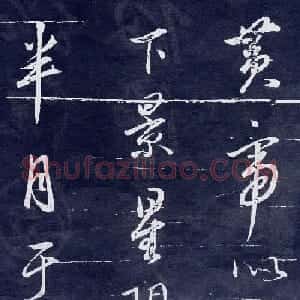 黄帝似
下景星明
半月于
Shufaziliao.COM